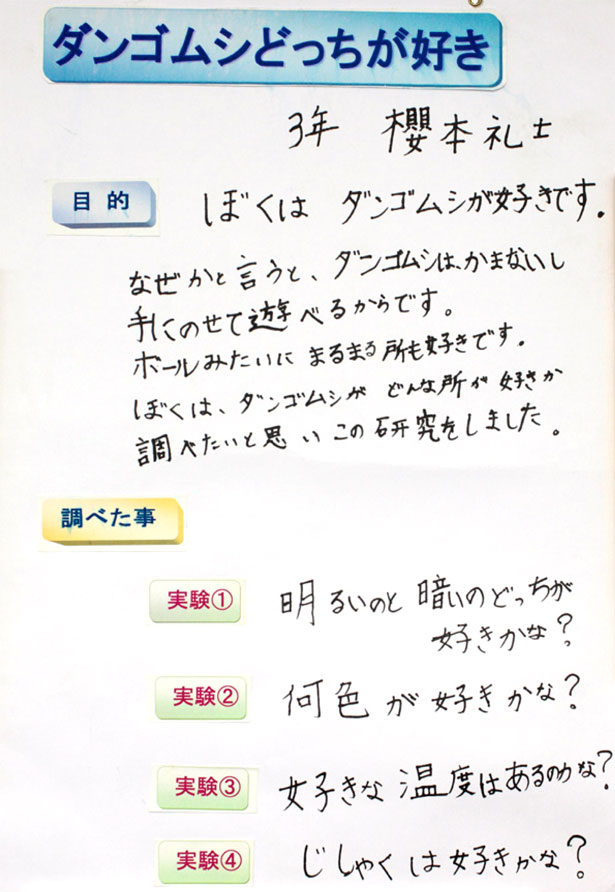 ダンゴムシどっちが好き
3年 櫻本礼士
目的 ぼくは ダンゴムシが好きです。
なぜかと言うと、ダンゴムシは、かまないし
手にのせて遊べるからです。
ボールみたいに まるまる所も好きです。
ぼくは、ダンゴムシが どんな所が好きか
調べたいと思い この研究をしました。
調べた事
実験① 明るいのと 暗いのどっちが
好きかな?
実験② 何色が好きかな?
実験③ 好きな温度はあるのかな?
実験④ じしゃくは好きかな?